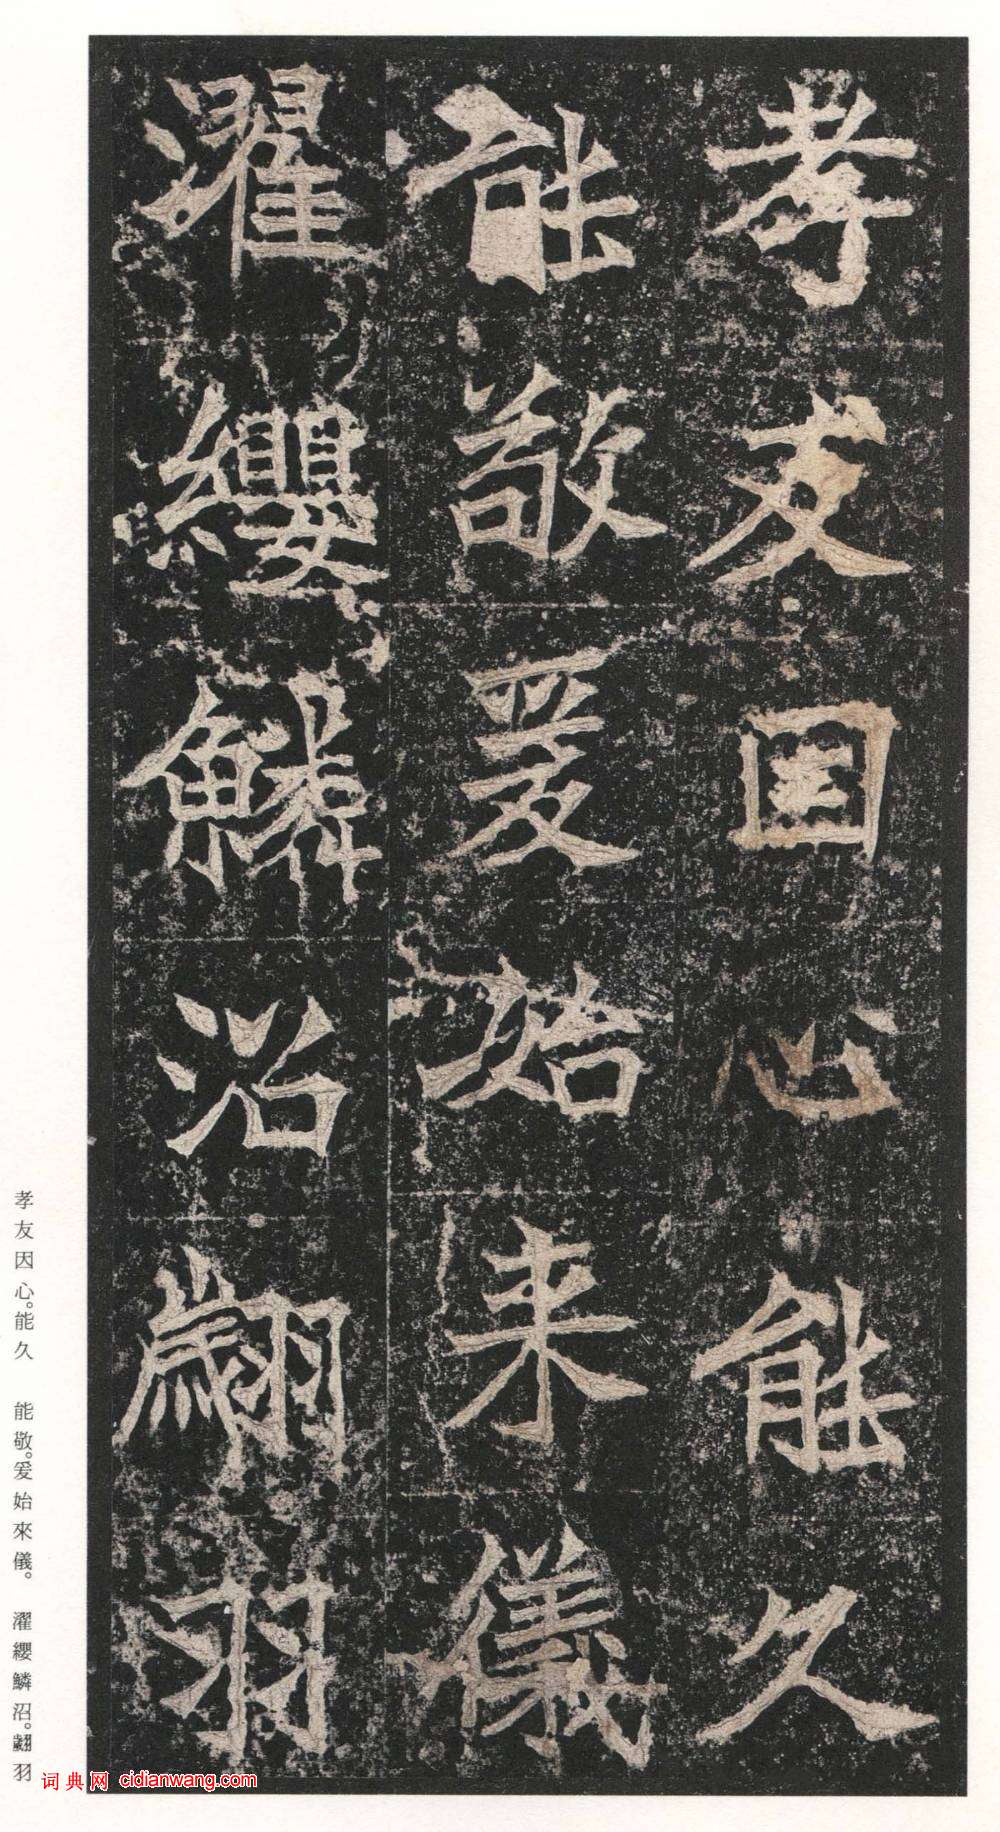 孝友因心能久
能敬爰始来儀
濯纓鱗沼翽羽
孝友因心。能久 能敬。爰始來儀。 濯纓鱗沼。翽羽
词典网 cidianwang.com